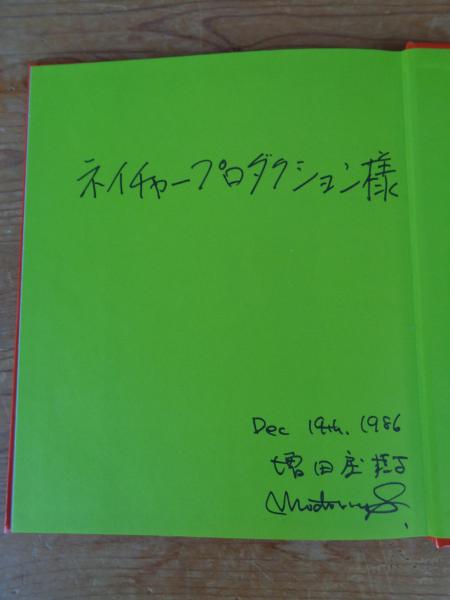 ネイチャープロダクション様
Dec 19th. 1986
増田